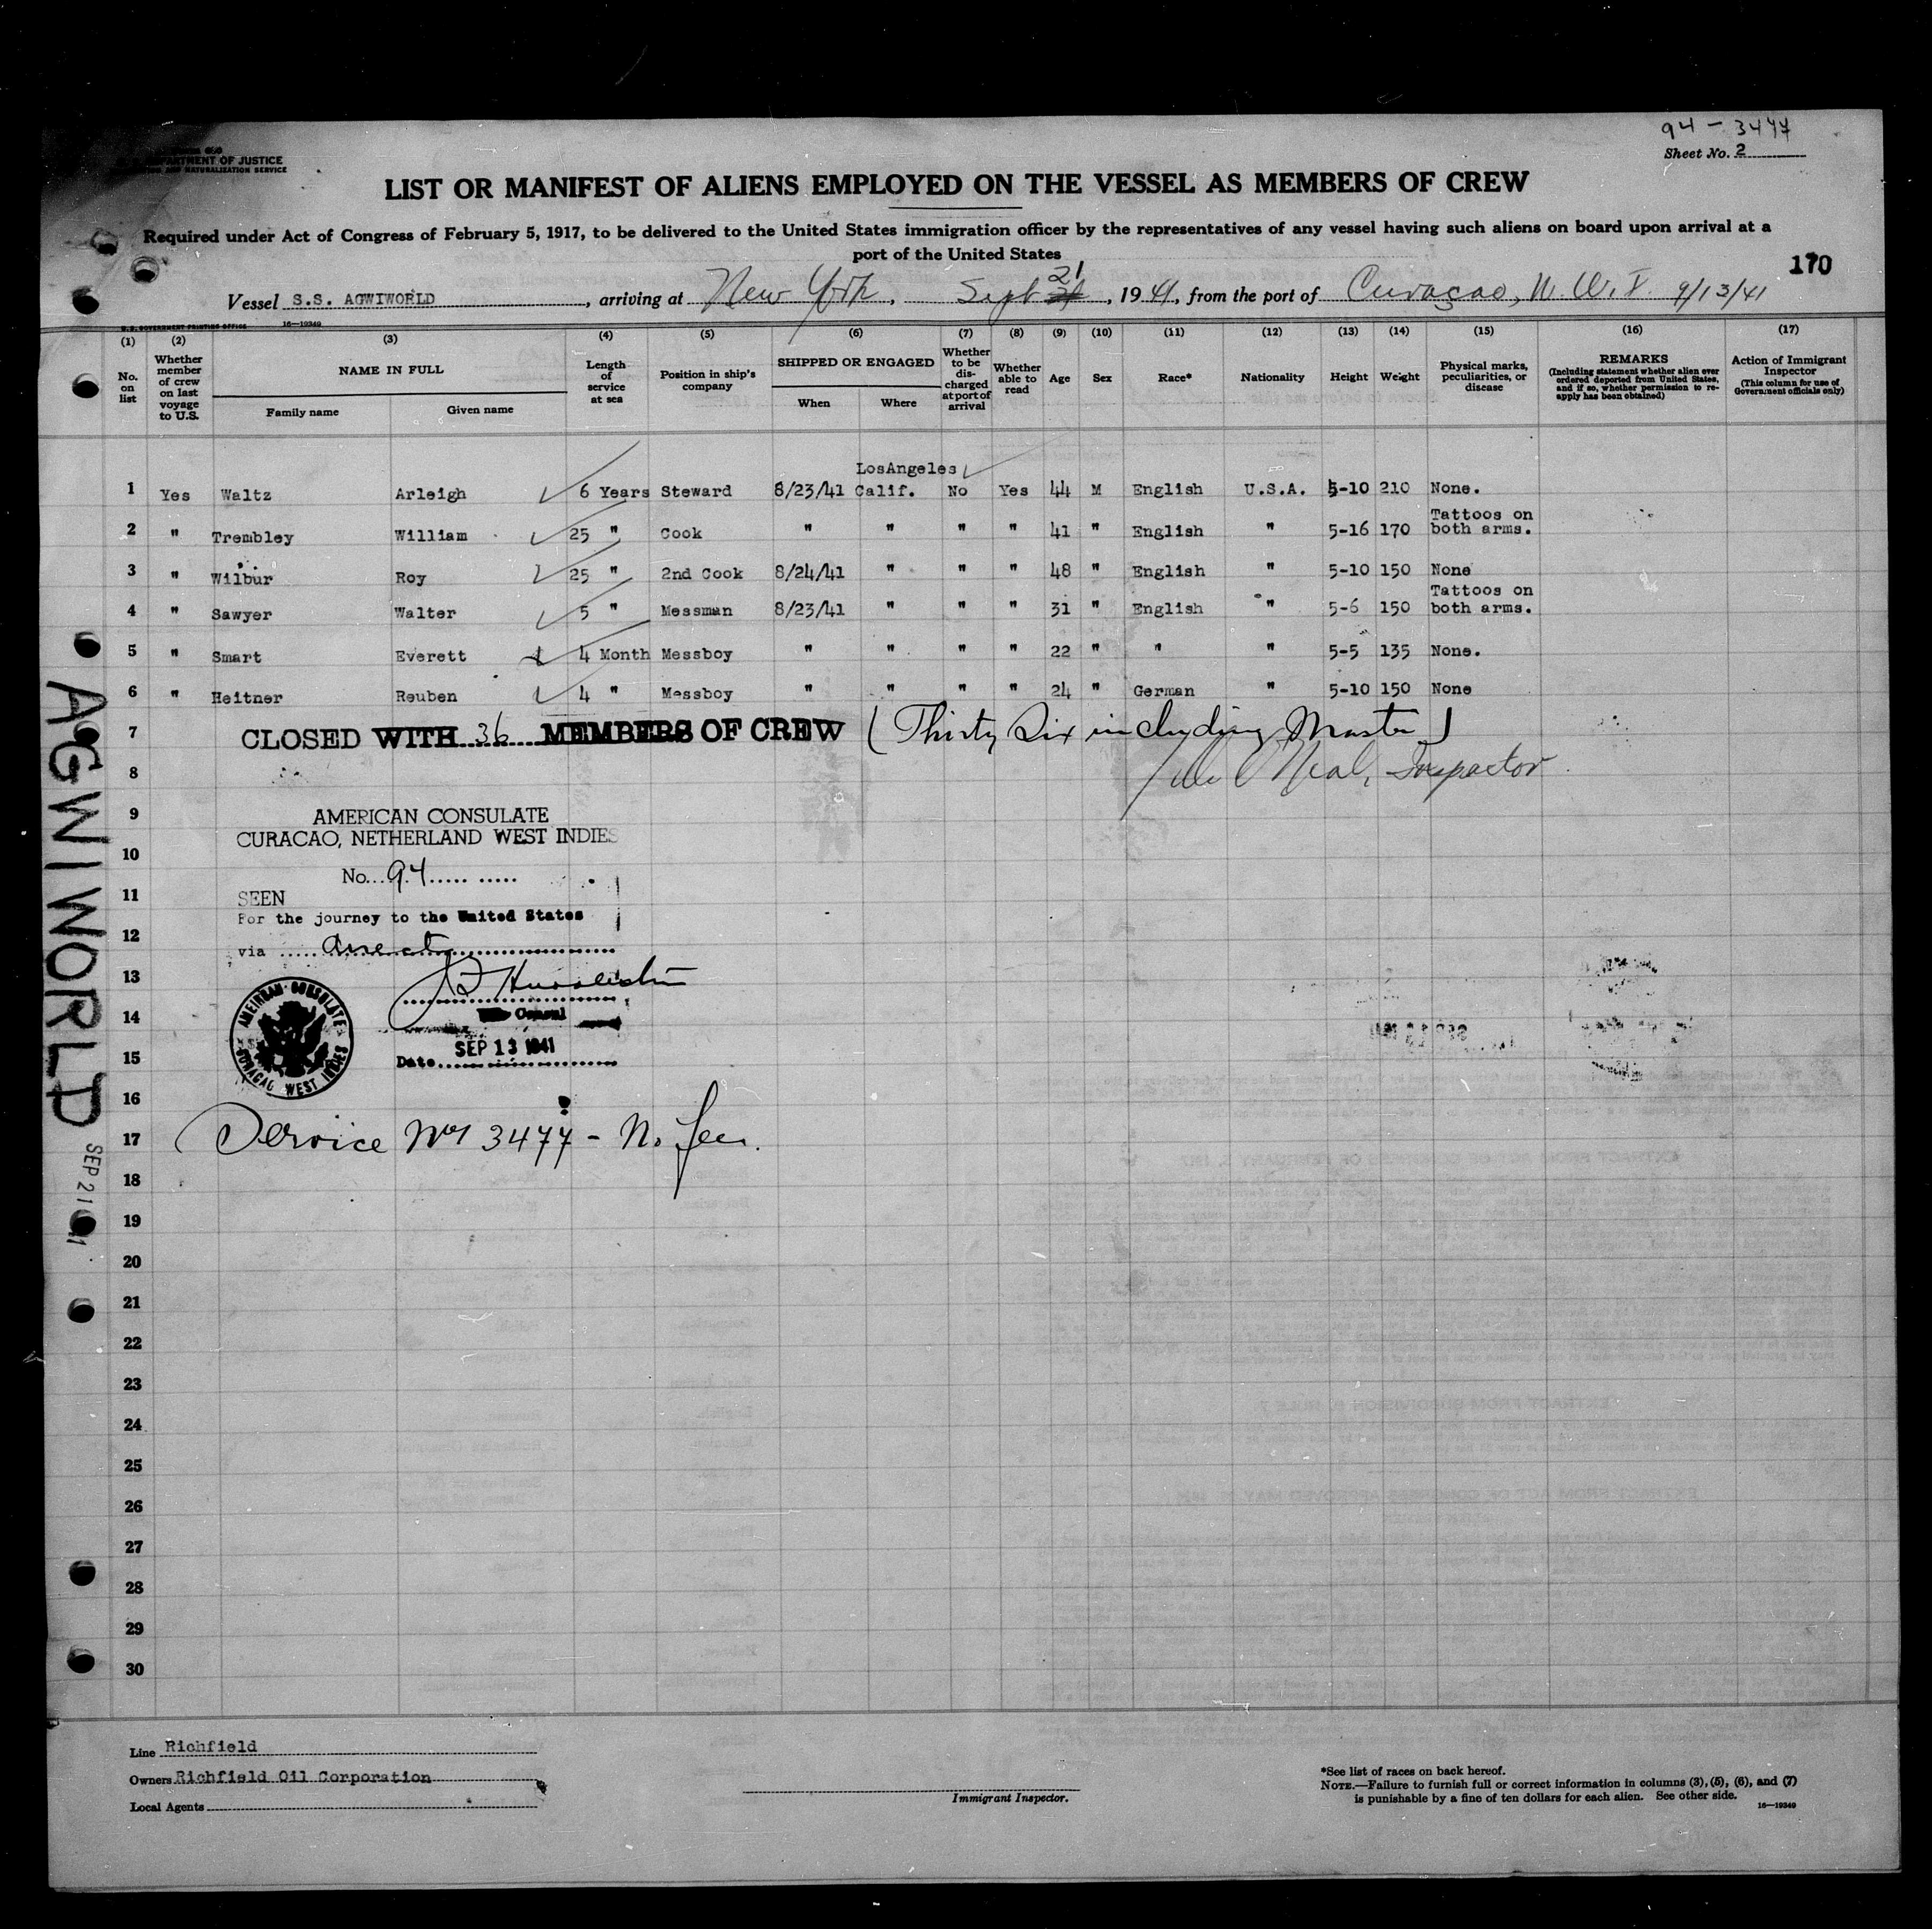 94 - 3477
Sheet No. 2
DEPARTMENT OF JUSTICE
IMMIGRATION AND NATURALIZATION SERVICE
LIST OR MANIFEST OF ALIENS EMPLOYED ON THE VESSEL AS MEMBERS OF CREW
Required under Act of Congress of February 5, 1917, to be delivered to the United States immigration officer by the representatives of any vessel having such aliens on board upon arrival at a
port of the United States
170
Vessel S.S. AGWIWORLD, arriving at New York, Sept 21, 1941, from the port of Curaçao, N.W.I. 9/13/41
U.S. GOVERNMENT PRINTING OFFICE 16—19349
(1) (2) (3) (4) (5) (6) (7) (8) (9) (10) (11) (12) (13) (14) (15) (16) (17)
No. on list
Whether member of crew on last voyage to U.S.
NAME IN FULL
Family name Given name
Length of service at sea
Position in ship's company
SHIPPED OR ENGAGED
When Where
Whether to be discharged at port of arrival
Whether able to read
Age
Sex
Race*
Nationality
Height
Weight
Physical marks, peculiarities, or disease
REMARKS
(Including statement whether alien ever ordered deported from United States, and if so, whether permission to reapply has been obtained)
Action of Immigrant Inspector
(This column for use of Government officials only)
1 Yes Waltz Arleigh 6 Years Steward 8/23/41 LosAngeles Calif. No Yes 44 M English U.S.A. 5-10 210 None.
2 " Trembley William 25 " Cook " " " " 41 " English " 5-16 170 Tattoos on both arms.
3 " Wilbur Roy 25 " 2nd Cook 8/24/41 " " " 48 " English " 5-10 150 None
4 " Sawyer Walter 5 " Messman 8/23/41 " " " 31 " English " 5-6 150 Tattoos on both arms.
5 " Smart Everett 4 Month Messboy " " " " 22 " " " 5-5 135 None.
6 " Heitner Reuben 4 " Messboy " " " " 24 " German " 5-10 150 None
7 CLOSED WITH 36 MEMBERS OF CREW (Thirty Six including Master)
8 Neal, Inspector
9 AMERICAN CONSULATE
CURACAO, NETHERLAND WEST INDIES
10
No. 94
11 SEEN
For the journey to the United States
12 via direct
13
14 Consul
AMERICAN CONSULATE
CURACAO WEST INDIES
15 Date SEP 13 1941
16
17 Service No 3477 - No fee.
18
19
20
21
22
23
24
25
26
27
28
29
30
AGWIWORLD
SEP 21 41
Line Richfield
Owners Richfield Oil Corporation
Local Agents
Immigrant Inspector.
*See list of races on back hereof.
NOTE.—Failure to furnish full or correct information in columns (3), (5), (6), and (7)
is punishable by a fine of ten dollars for each alien. See other side.
16—19349